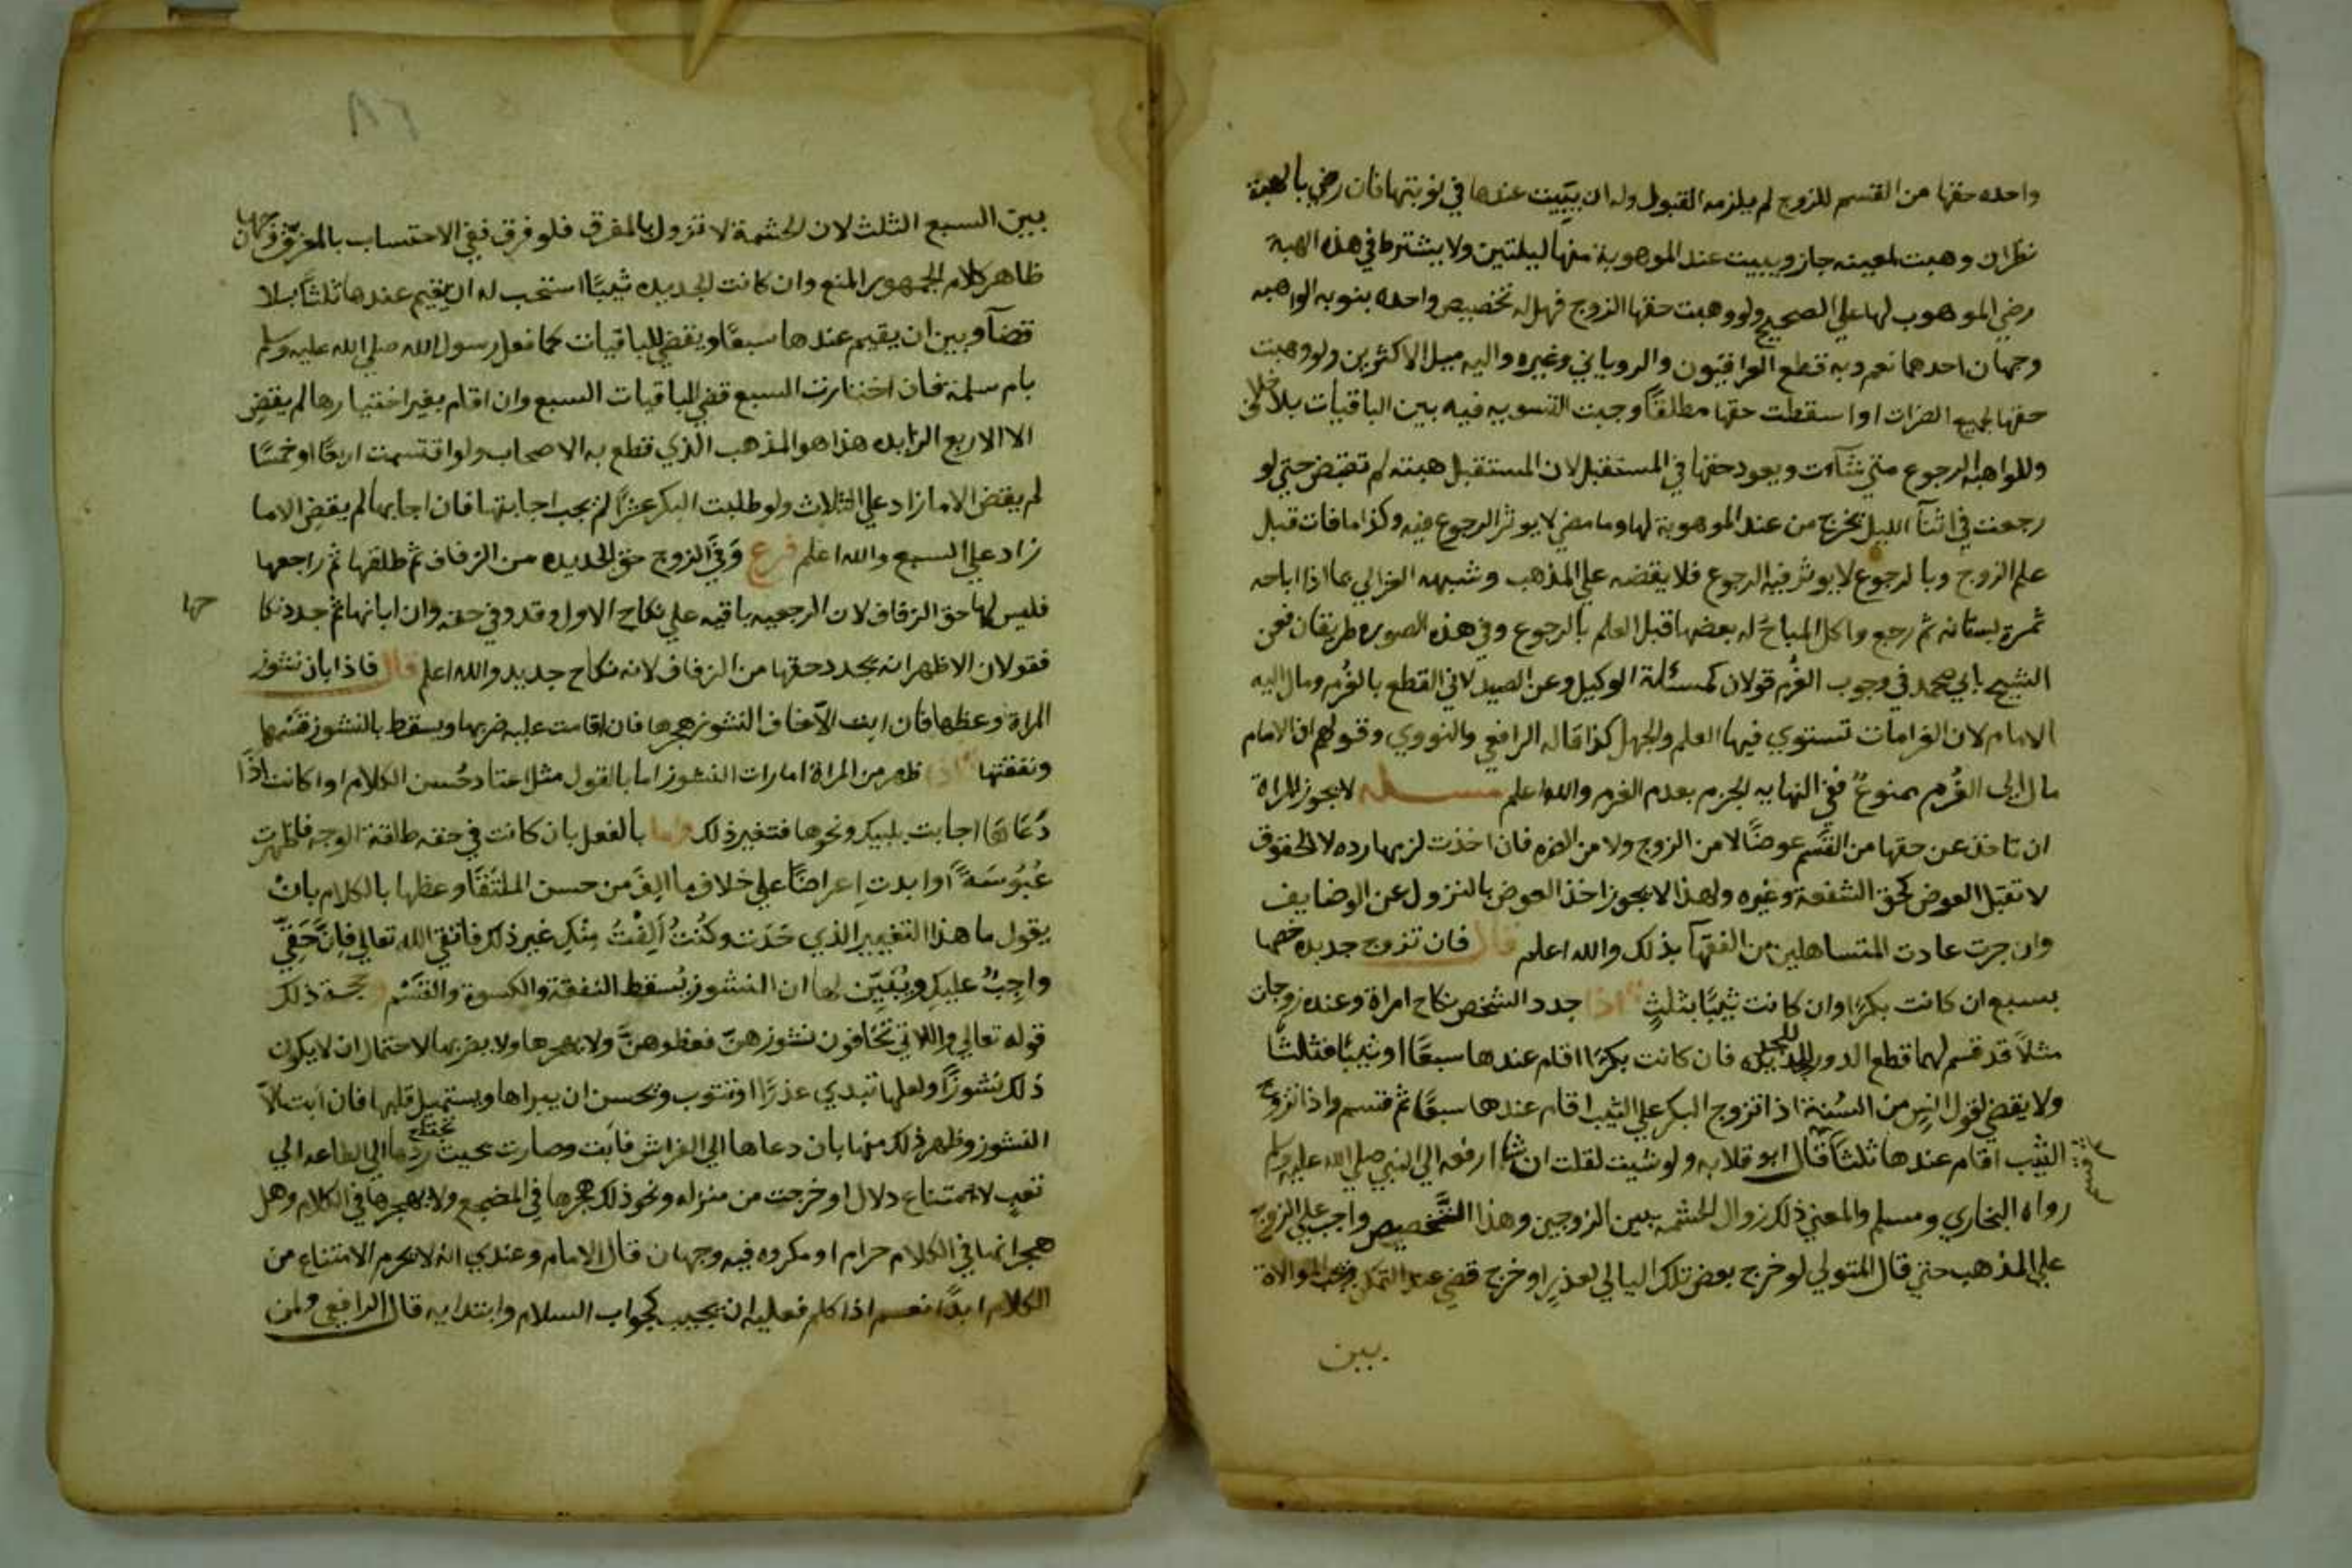 واحده حقها من القسم للزوج لم يلزمه القبول وله ان يبيت عندها في نوبتها فان رضي بالهبة
نظران وهبت لمعينه جاز ويبيت عند الموهوبة منها ليلتين ولا يشترط في هذه الهبة
رضي الموهوب لها علي الصحيح ولو وهبت حقها الزوج فهل له تخصيص واحده بنوبه الواهبه
وجهان احدهما نعم وبه قطع العراقيون والروياني وغيره واليه ميل الاكثرين ولو وهبت
حقها لجميع الضرات او اسقطت حقها مطلقًا وجبت التسويه فيه بين الباقيات بلا خلاف
وللواهبه الرجوع متي شآءت ويعود حقها في المستقبل لان المستقبل هبته لم تقبض حتي لو
رجعت في اثنآ الليل يخرج من عند الموهوبة لها وما مضي لا يوثر الرجوع فيه وكذا ما فات قبل
علم الزوج وبالرجوع لا يوثر فيه الرجوع فلا يقضه علي المذهب وشبهه الغزالي بما اذا اباحه
ثمرة بستانه ثم رجع واكل المباح له بعضها قبل العلم بالرجوع وفي هذه الصوره طريقان فعن
الشيخ ابي محمد في وجوب الغُرم قولان كمسئلة الوكيل وعن الصيدلاني القطع بالغُرم ومال اليه
الامام لان الغرامات تستوي فيها العلم والجهل كذا قاله الرافعي والنووي وقولهم ان الامام
مال الى الغُرم ممنوعٌ ففي النهايه الجزم بعدم الغرم والله اعلم مسـله لا يجوز للمراة
ان تاخذ عن حقها من القَسْم عوضًا لا من الزوج ولا من الضره فان اخذت لزمها رده لا الحقوق
لا تقبل العوض كحق الشفعة وغيره ولهذا لا يجوز اخذ العوض بالنزول عن الوضايف
وان جرت عادت المتساهلين من الفقهآ بذلك والله اعلم قال فان تزوج جديده خصها
بسبع ان كانت بكرًا وان كانت ثيبًا بثلثٍ اذا جدد الشخص نكاح امراة وعنده زوجان
مثلاً قد قسم لهما قطع الدور للجديده فان كانت بكرًا اقام عندها سبعًا او ثيبًا فثلثًا
ولا يقضي لقول انس من السُنة اذا تزوج البكر علي الثيب اقام عندها سبعًا ثم قسم واذا تزوج
الثيب اقام عندها ثلثًا قال ابو قلابه ولو شيت لقلت ان انسًا رفعه الي النبي صلي الله عليه وسلم
رواه البخاري ومسلم والمعني ذلك زوال الحشمه بين الزوجين وهذا التخصيص واجب علي الزوج
علي المذهب حتي قال المتولي لو خرج بعض تلك اليالي لعذرٍ او خرج قضي عند التمكن وتجب الموالاة
بين
٨٦
بين السبع الثلث لان الحشمة لا تزول بالمفرق فلو فرق ففي الاحتساب بالمفرق وجهان
ظاهر كلام الجمهور المنع وان كانت الجديده ثيبًا استحب له ان يقيم عندها ثلثًا بلا
قضآ وبين ان يقيم عندها سبعًا ويقضي للباقيات كما فعل رسول الله صلي الله عليه وسلم
بام سلمة فان اختارت السبع قضي للباقيات السبع وان اقام بغير اختيارها لم يقضِ
الا الاربع الزايده هذا هو المذهب الذي قطع به الاصحاب ولو اقتسمت اربعًا او خمسًا
لم يقض الا ما زاد علي الثلاث ولو طلبت البكر عشرًا لم يجب اجابتها فان اجابها لم يقضِ الا ما
زاد علي السبع والله اعلم فرع وَفَّي الزوج حق الجديده من الزفاف ثم طلقها ثم راجعها
فليس لها حق الزفاف لان الرجعيه باقيه علي نكاح الاول وقد وفي حقه وان ابانها ثم جدد نكا
حها
فقولان الاظهر انه يجدد حقها من الزفاف لانه نكاح جديد والله اعلم قال فاذا بان نشوز
المراة وعظها فان ابت الّا خاف النشوز هجرها فان اقامت عليه ضربها ويسقط بالنشوز قسْمها
ونفقتها اذا ظهر من المراة امارات النشوز اما بالقول مثل اعتاد حُسن الكلام او كانت اذا
دَعَاها اجابت بلبيك ونحوها فتغير ذلك واما بالفعل بان كانت في حقه طلقة الوجه فاظهرت
عُبُوْسَةً او ابدت اعراضًا علي خلاف ما الِفَ من حسن الملتَقَا وعظها بالكلام بانْ
يقول ما هذا التغيير الذي حَدَث وكُنْتُ اَلِفْتُ مِنْكِ غير ذلك فاتقي الله تعالي فاِنَّ حَقِيّ
واجِبٌ عليكِ ويُبَيِّن لها ان النشوز يُسقط النفقة والكسوة والقَسْم وحجة ذلك
قوله تعالي واللاتي تخافون نشوزهنّ فعظوهنَّ ولا يهجرها ولا يضربها لاحتمال ان لا يكون
ذلك نشوزًا ولعلها تبدي عذرًا او تتوب ونحسن ان يبراها ويستميل قلبها فان ابت الّا
النشوز وظهر ذلك منها بان دعاها الي الفراش فابت وصارت بحيث يحتاج ردها الي الطاعه الي
تعبٍ لا امتناع دلال او خرجت من منزله ونحو ذلك هجرها في المضجع ولا يهجرها في الكلام وهل
هجرانها في الكلام حرام او مكروه فيه وجهان قال الامام وعندي انه لا يحرم الامتناع من
الكلام ابدًا نعم اذا كلم فعليه ان يجيب كجواب السلام وابتدايه قال الرافعي ولمن